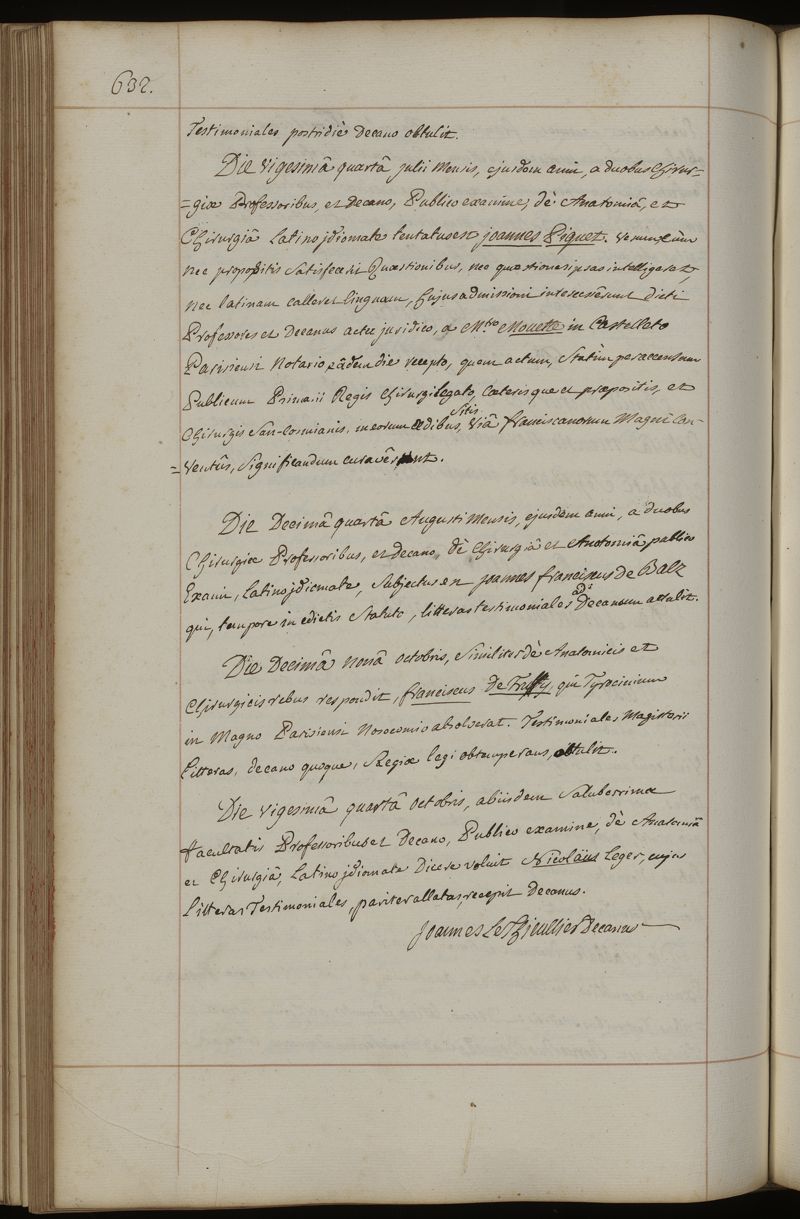 632.
Testimoniales postridiè Decano obtulit.
Die vigesimâ quartâ julii Mensis, ejusdem anni, a duobus Chirur-
=giæ Professoribus, et Decano, Publico examine, dè Anatomiâ, et
Chirurgiâ Latino jdiomate tentatus est joannes Piquet. Verum cùm
nec propositis satisfecerit Quæstionibus, nec quæstiones ipsas intelligeret,
nec latinam calleret linguam, Cujus admissioni intercesserunt dicti
Professores et Decanus actu juridico, a Mtro Mouette in Castelleto
Parisiensi Notario, eâdem die recepto, quem actum, Statìm per accensum
Publicum Primarii Regis Chirurgi legato, Cæterisque et præpositis, et
Chirurgis San-Cosmianis, in eorum Ædibus, sitis Viâ franciscanorum Magni Con-
=ventûs, significandum curavêrunt.
Die Decimâ quartâ Augusti Mensis, ejusdem anni, a duobus
Chirurgiæ Professoribus, et Decano, dè Chirurgiâ et Anatomiâ publico
Exami, Latino jdiomate, Subjectus est joannes franciscus de Balz
qui, tempore in edictis Statuto, litteras testimoniales ad Decanum attulit.
Die Decimâ nonâ octobris, Similiter dè Anatomicis et
Chirurgicis rebus respondit, franciscus De Treffy, qui Tyrocinium
in Magno Parisiensi Nosocomio absolverat. Testimoniales Magisterii
Litteras, decano quoque, Regiæ legi obtemperans, obtulit.
Die vigesimâ quartâ octobris, ab iisdem Saluberrimæ
facultatis Professoribus et Decano, Publico examine, dè Anatomiâ
et Chirurgiâ, Latino jdiomate Dicere voluit Nicolaüs Leger, cujus
Litteras Testimoniales, pariter allatas, recepit Decanus.
Joannes Le Thieullier Decanus